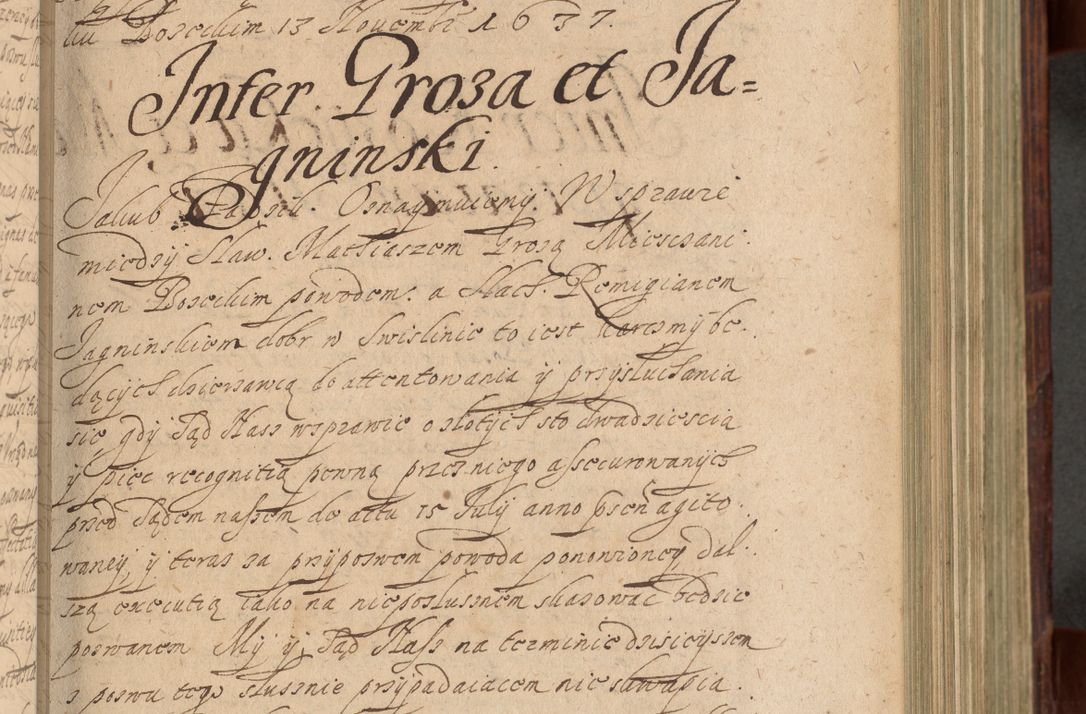 liu Bozeckim 13 Novembr 1637.
Inter Groza et Ja=
gninski.
Jakub Oznaymuiemy. W sprawie
miedzy Sław. Mathiaszem Grozą Miesczani
nem Bozeckim powodem. a Slach. Remigianem
Jagninskiem dobr w Swislinie to iest karczmy be
dących dzierzawcą do attentowania y przysłuchania
się gdy Sąd Nasz wsprawie o złotych sto dwadziescia
y pięc recognitią pewną przez niego assecurowanych
przed Sądem naszem de actu 15 July anno præs agito
waney y teraz za przypozwem powoda ponowioney dal
szą executią iako na nieposłusznem skazować będzie
pozwanem My y Sąd Nasz na terminie dzisieyszem
z pozwu tego słusznie przypadaiacem nie